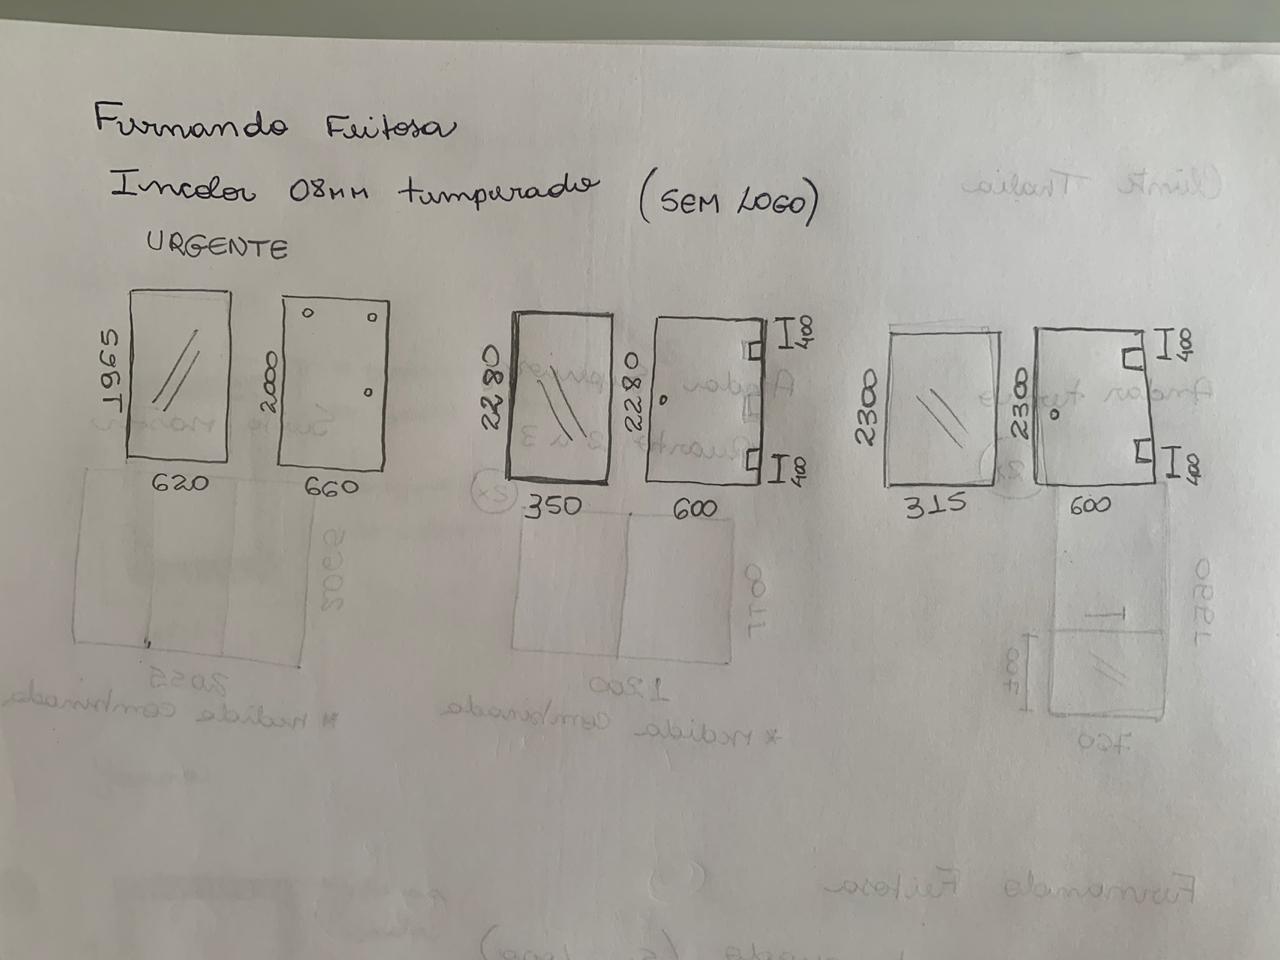 Fernando Feitosa
Incolor 08MM temperado (SEM LOGO)
URGENTE
1965
620
2000
660
2280
350
2280
400
400
600
2300
315
2300
400
400
600